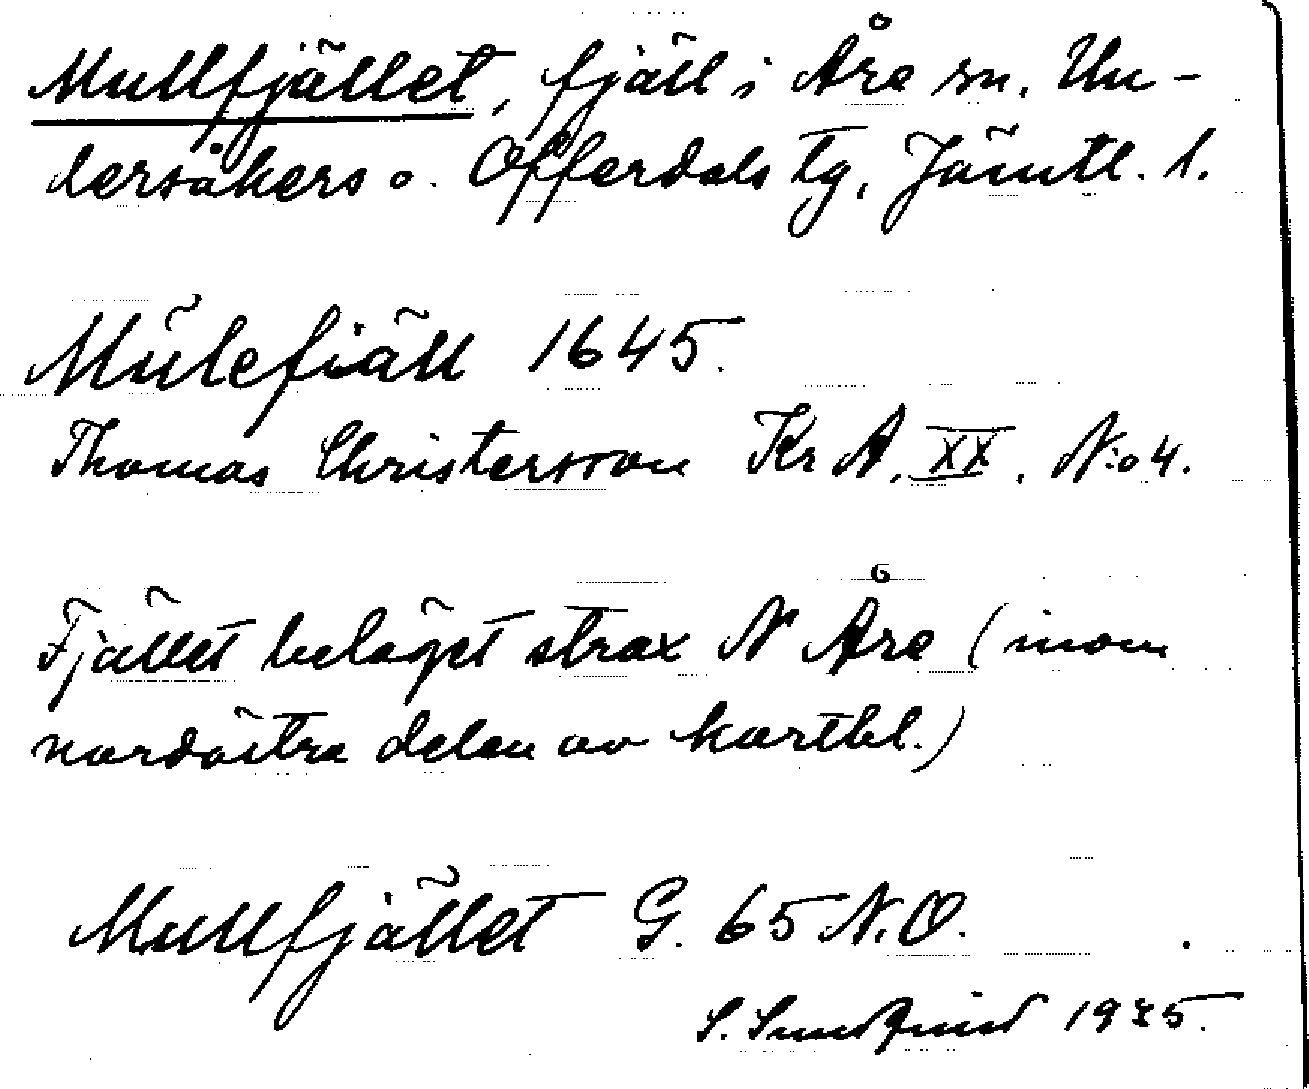 Mullfjället, fjäll i Åre sn. Un-
dersåkers o. Offerdals tg, Jämtl. l.
Mülefiäll 1645.
Thomas Christersson Kr A. XX. N:o 4.
Fjället beläget strax N Åre (inom
nordöstra delen av kartbl.)
Mullfjället G. 65 N.O.
S. 1935.